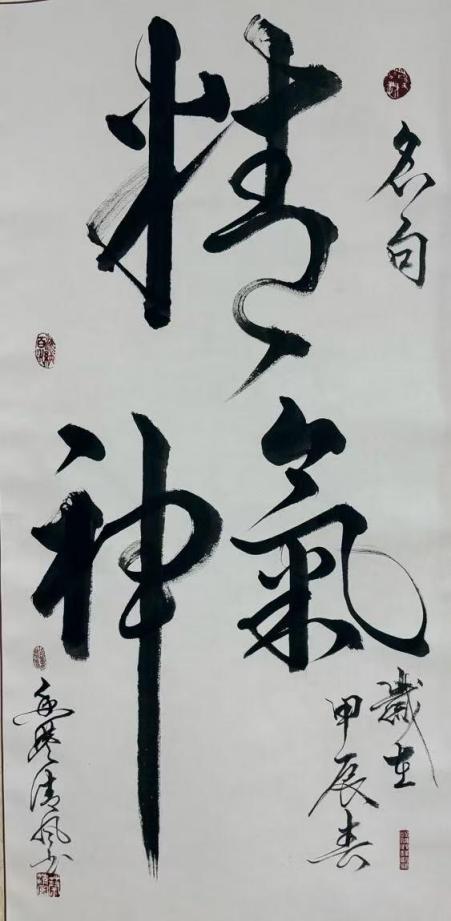 名句
精氣神
歲在
甲辰春
清風书